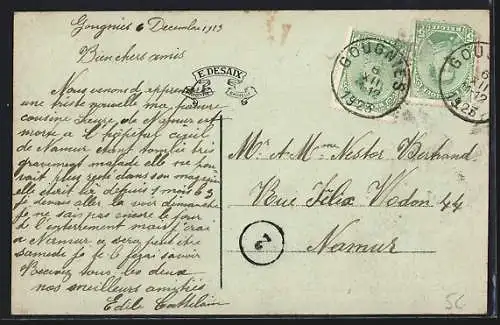 Gougnies 6 Decembre 1923
Bien chers amis
Nous venons d'apprendre
une triste nouvelle ma pauvre
cousine Laure de Namur est
morte a l'hôpital civil
de Namur étant tombée très
gravement malade elle ne pou
vait plus rester dans son magasin
elle était là depuis 1 mois
Je devais aller la voir dimanche
je ne sais pas encore le jour
de l'enterrement mais j'irai
a Namur ce sera peut être
samedi je te le ferai savoir
Recevez tous les deux
nos meilleurs amitiés
Edile
E. DESAIX
GOUGNIES
6
XII
12
1923
GOUGNIES
6
XII
12
1923
Mr & Mme Nestor Bertrand
Rue Félix Wodon 44
Namur
5C